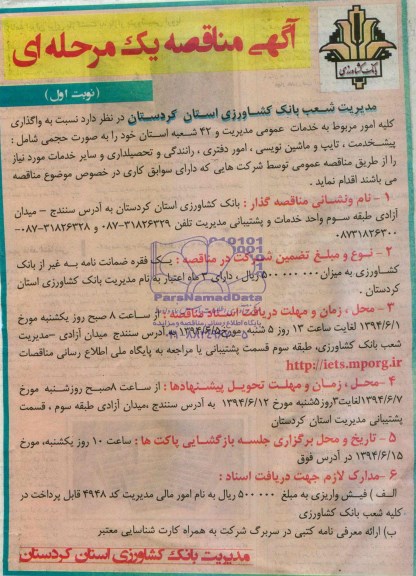 آگهی مناقصه یک مرحله ای
بانک کشاورزی
(نوبت اول)
مدیریت شعب بانک کشاورزی استان کردستان در نظر دارد نسبت به واگذاری
کلیه امور مربوط به خدمات عمومی مدیریت و ۴۲ شعبه استان خود را به صورت حجمی شامل :
پیشخدمت ، تایپ و ماشین نویسی ، امور دفتری ، رانندگی و تحصیلداری و سایر خدمات مورد نیاز
را از طریق مناقصه عمومی توسط شرکت هایی که دارای سوابق کاری در خصوص موضوع مناقصه
می باشند اقدام نماید .
۱ - نام ونشانی مناقصه گذار : بانک کشاورزی استان کردستان به آدرس سنندج - میدان
آزادی طبقه سوم واحد خدمات و پشتیبانی مدیریت تلفن ۳۱۸۲۶۳۲۹-۰۸۷ و ۳۱۸۲۶۳۲۸-۰۸۷-
۰۸۷۳۱۸۲۶۳۰۰
۲ - نوع و مبلغ تضمین شرکت در مناقصه : یک فقره ضمانت نامه به غیر از بانک
کشاورزی به میزان ۵۰۰۰۰۰۰۰۰ ریال ، دارای ۳ ماه اعتبار به نام مدیریت بانک کشاورزی استان
کردستان .
۳ - محل ، زمان و مهلت دریافت اسناد مناقصه : از ساعت ۸ صبح روز یکشنبه مورخ
۱۳۹۴/۶/۱ لغایت ساعت ۱۳ روز ۵ شنبه، مورخ ۱۳۹۴/۶/۵ به آدرس سنندج میدان آزادی -مدیریت
شعب بانک کشاورزی، طبقه سوم قسمت پشتیبانی یا مراجعه به پایگاه ملی اطلاع رسانی مناقصات
http://iets.mporg.ir
۴ -محل ، زمان و مهلت تحویل پیشنهادها : از ساعت ۸صبح روزشنبه مورخ
۱۳۹۴/۶/۷لغایت۳روز۵شنبه مورخ ۱۳۹۴/۶/۱۲ به آدرس سنندج ،میدان آزادی طبقه سوم ، قسمت
پشتیبانی مدیریت استان کردستان
۵ - تاریخ و محل برگزاری جلسه بازگشایی پاکت ها : ساعت ۱۰ روز یکشنبه، مورخ
۱۳۹۴/۶/۱۵ در آدرس فوق
۶ -مدارک لازم جهت دریافت اسناد :
الف ) فیش واریزی به مبلغ ۵۰۰۰۰۰ ریال به نام امور مالی مدیریت کد ۴۹۴۸ قابل پرداخت در
کلیه شعب بانک کشاورزی
ب) ارائه معرفی نامه کتبی در سربرگ شرکت به همراه کارت شناسایی معتبر
مدیریت بانک کشاورزی استان کردستان
ParsNamadData
پایگاه اطلاع رسانی مناقصه و مزایده